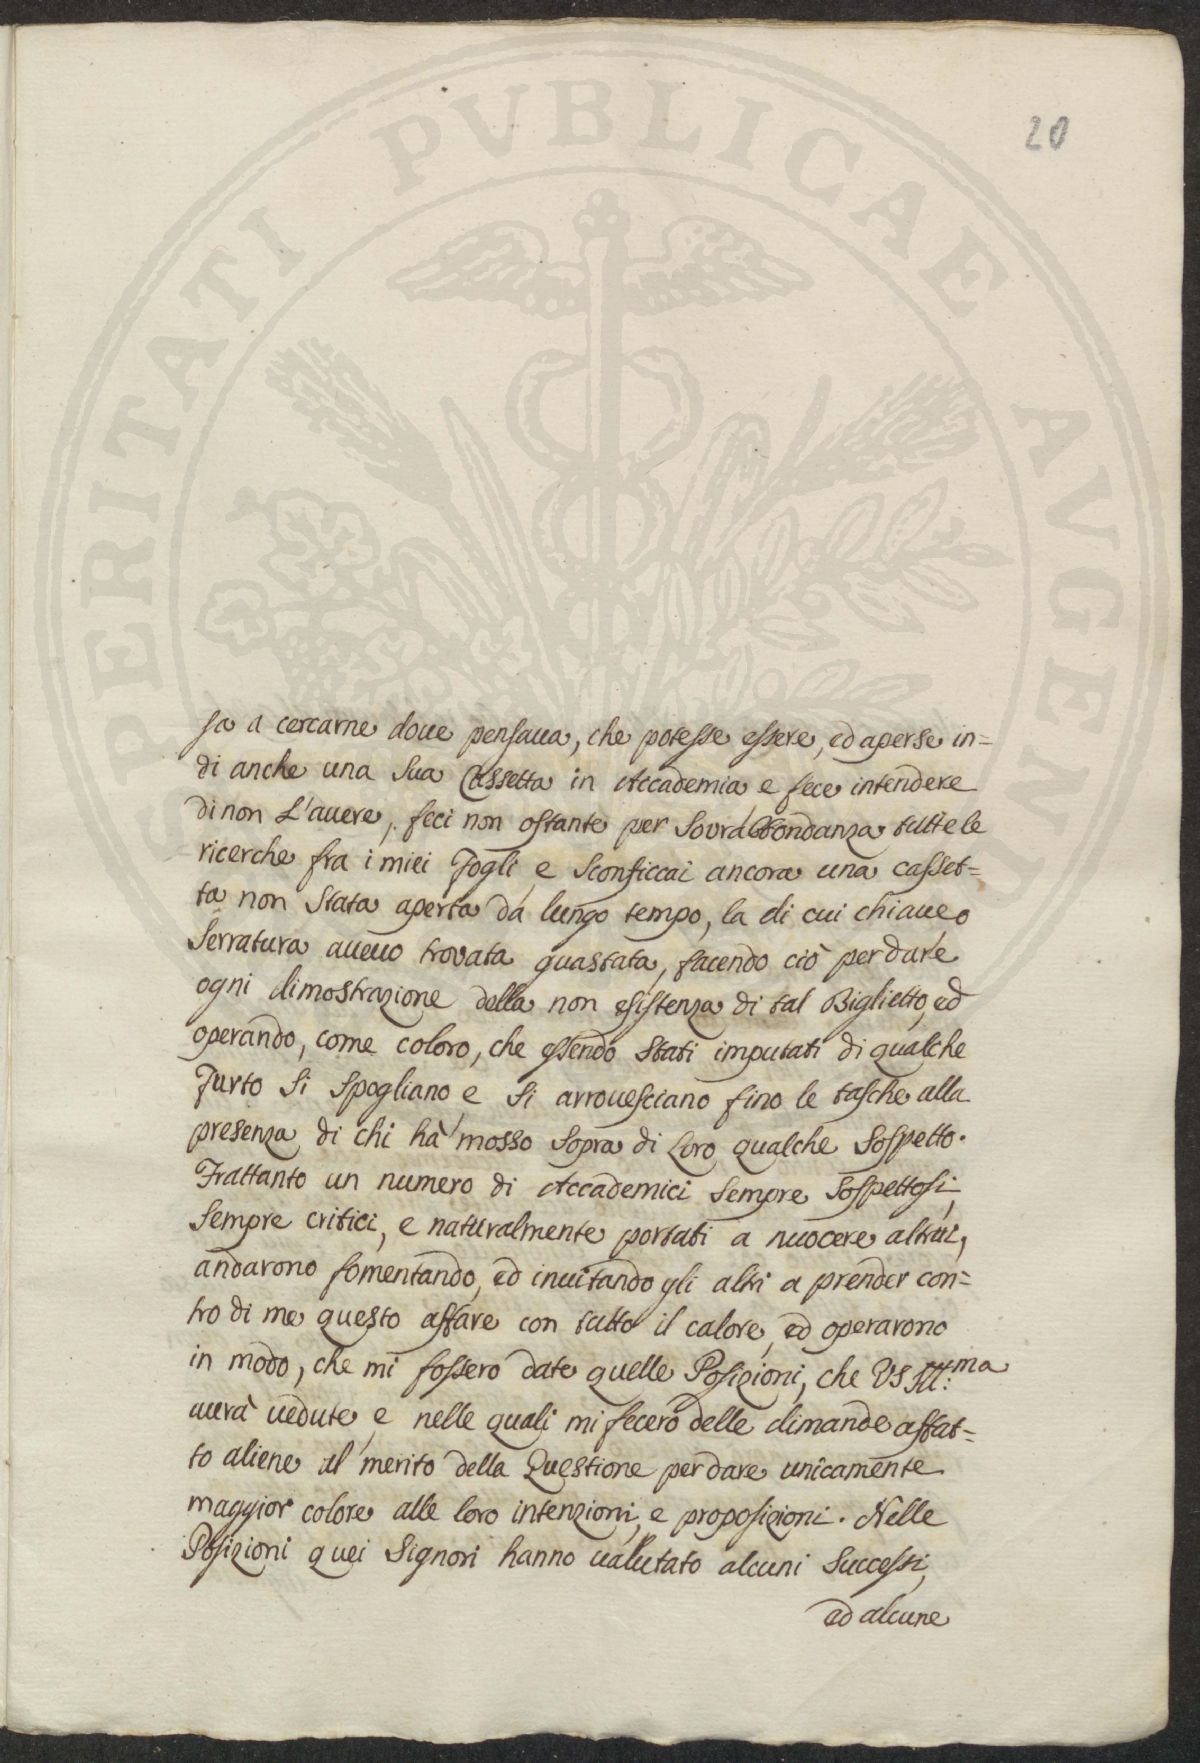 20
sa a cercarne doue pensaua, che potesse essere, ed aperse in=
di anche una sua Cassetta in Accademia e fece intendere
di non L'auere, feci non ostante per Sourabbondanza tutte le
ricerche fra i miei Fogli, e sconficcai ancora una casset=
ta non stata aperta da lungo tempo, la di cui chiaue, o
Serratura aueuo trouata guastata, facendo ciò per dare
ogni dimostrazione della non esistenza di tal Biglietto, ed
operando, come coloro, che essendo stati imputati di qualche
Furto si spogliano e si arrouesciano fino le tasche alla
presenza di chi hà mosso sopra di Loro qualche Sospetto.
Frattanto un numero di Accademici sempre Sospettosi,
sempre critici, e naturalmente portati a nuocere altrui,
andarono fomentando, ed inuitando gli altri a prender con=
tro di me questo affare con tutto il calore, ed operarono
in modo, che mi fossero date quelle Posizioni, che VS Ill:ma
aurà uedute, e nelle quali mi fecero delle dimande affat=
to aliene al merito della Questione per dare unicamente
maggior colore alle loro intenzioni, e proposizioni. Nelle
Posizioni quei Signori hanno ualutato alcuni Successi,
ed alcune
PERITATI PVBLICAE AVGEND